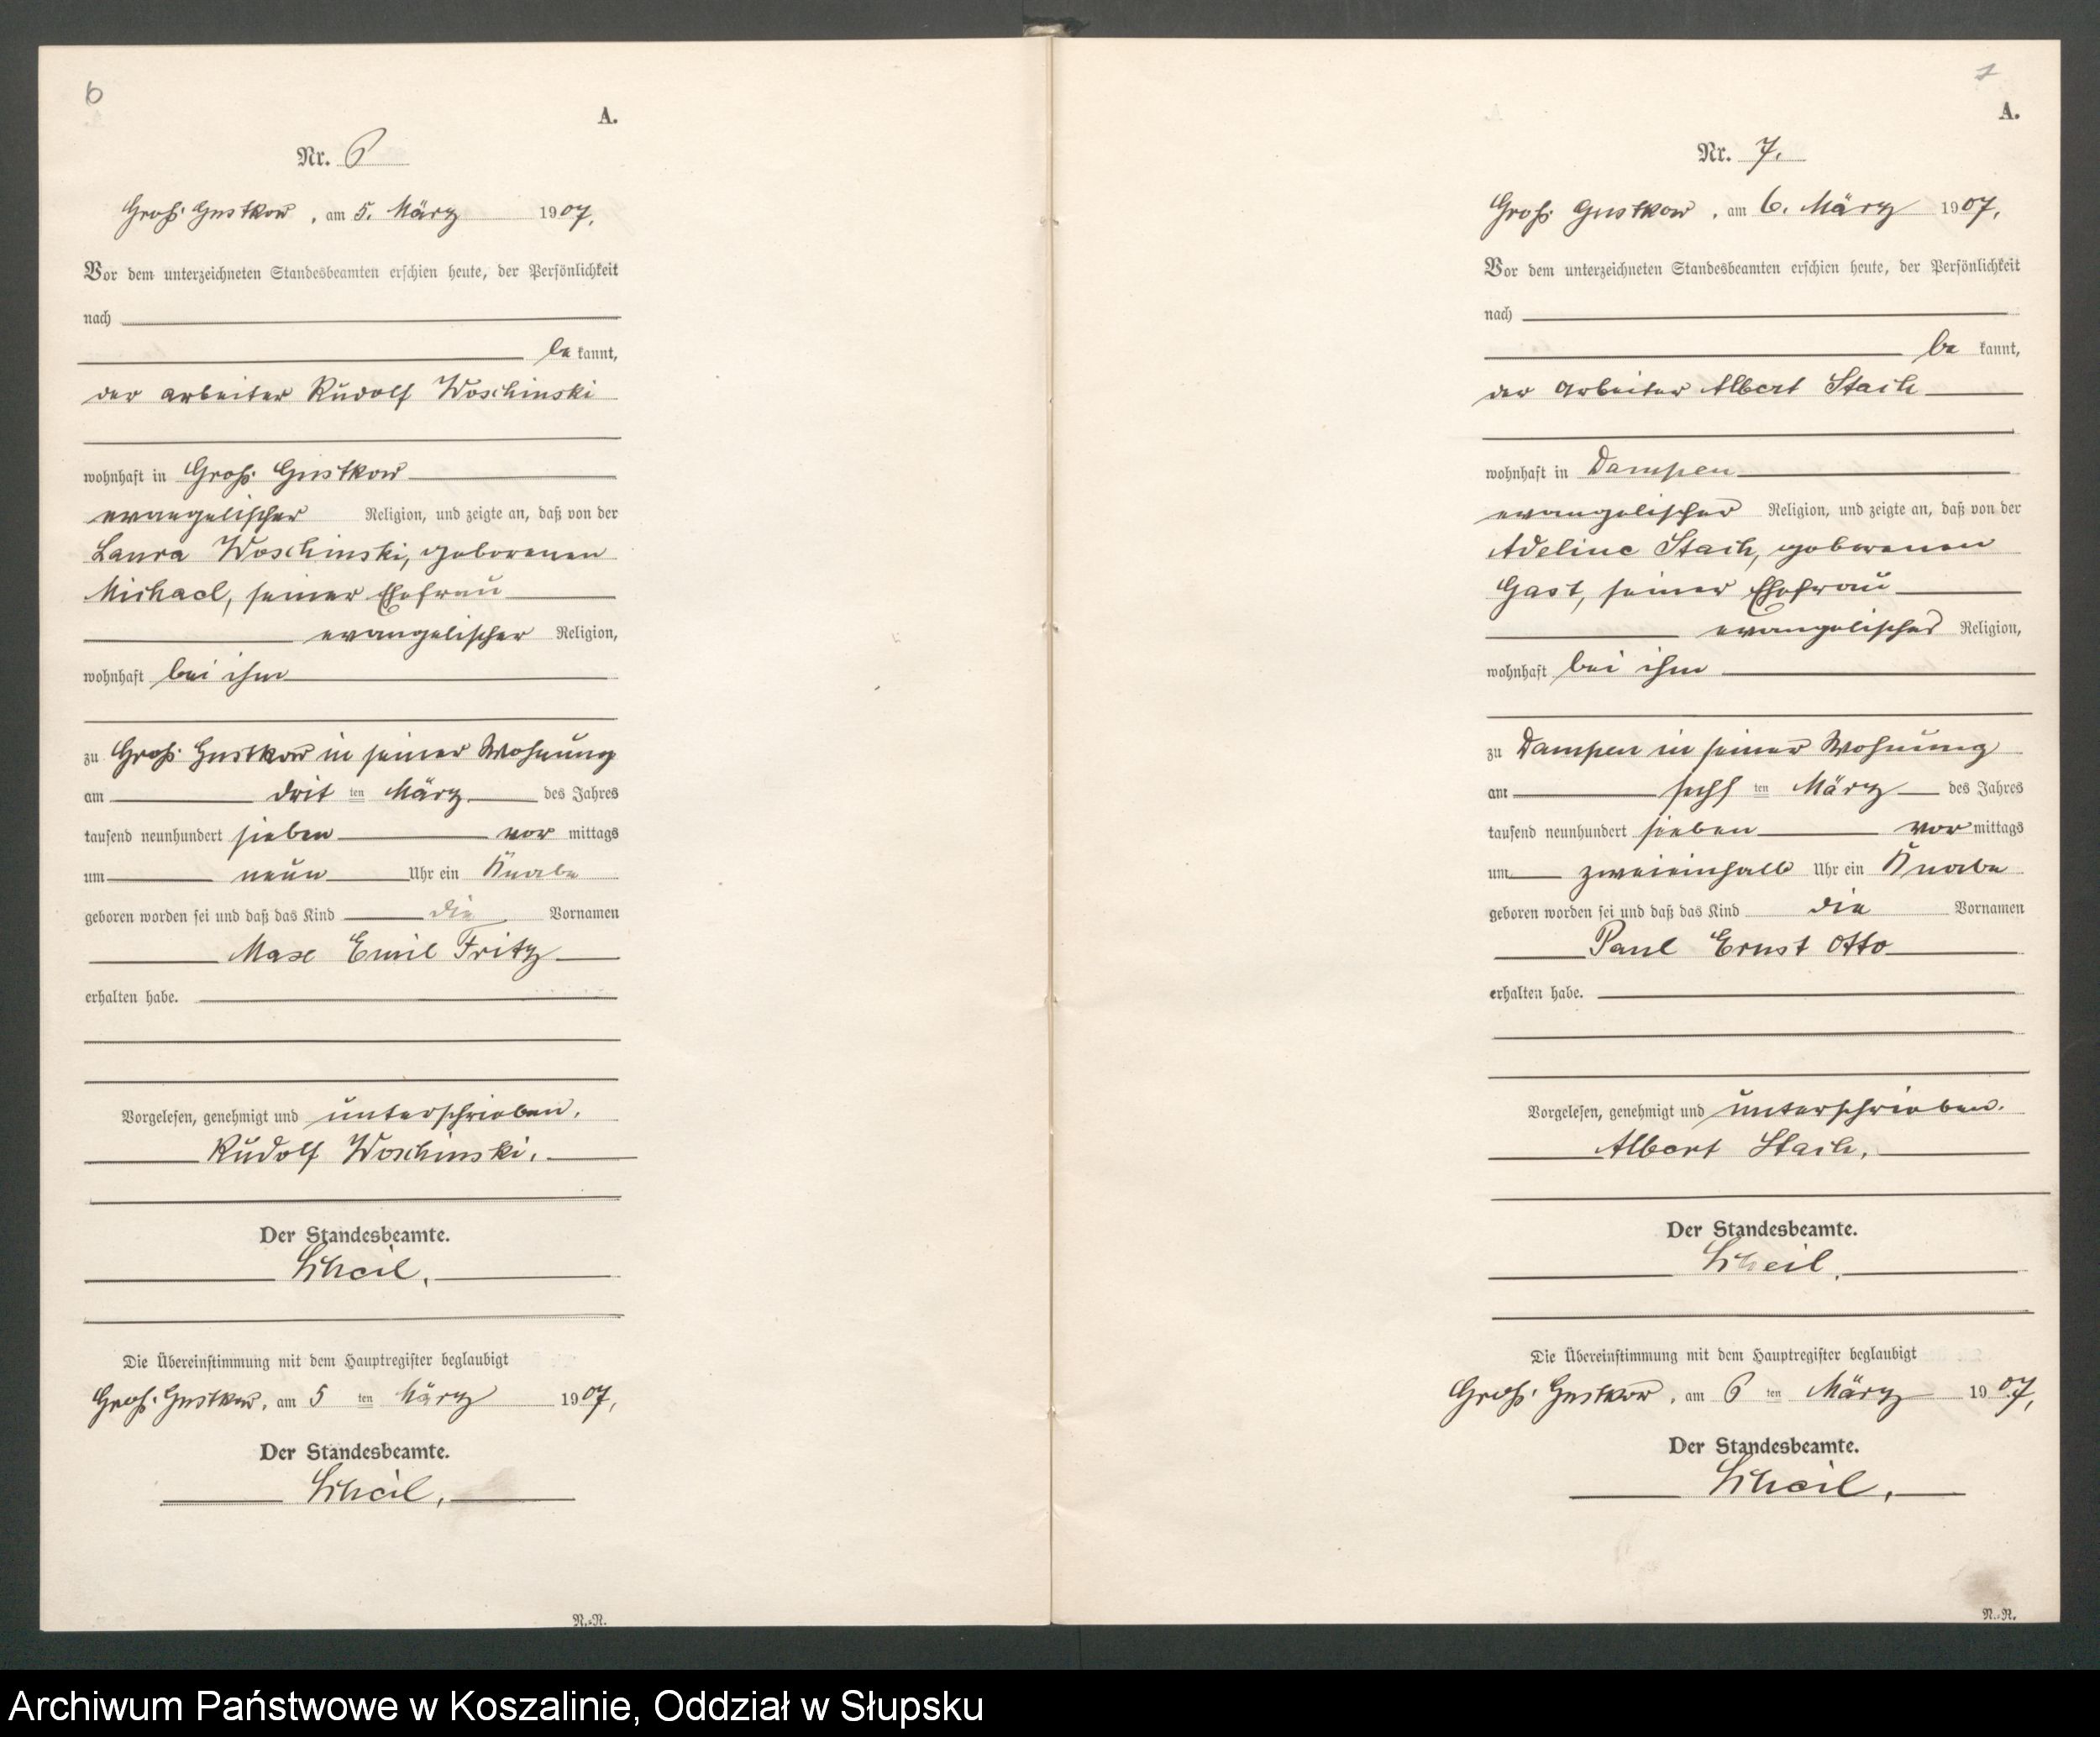 6
A.
Nr. 6
Groß Gustkow, am 5. März 1907,
Vor dem unterzeichneten Standesbeamten erschien heute, der Persönlichkeit
nach
be kannt,
der Arbeiter Rudolf Woschinski
wohnhaft in Groß Gustkow
evangelischer Religion, und zeigte an, daß von der
Laura Woschinski, geborenen
Michael, seiner Ehefrau
evangelischer Religion,
wohnhaft bei ihm
zu Groß Gustkow in seiner Wohnung
am drit ten März des Jahres
tausend neunhundert sieben vor mittags
um neun Uhr ein Knabe
geboren worden sei und daß das Kind die Vornamen
Max Emil Fritz
erhalten habe.
Vorgelesen, genehmigt und unterschrieben.
Rudolf Woschinski.
Der Standesbeamte.
Scheil.
Die Übereinstimmung mit dem Hauptregister beglaubigt
Groß Gustkow, am 5 ten März 1907,
Der Standesbeamte.
Scheil.
N.=N.
7
A.
Nr. 7.
Groß Gustkow, am 6. März 1907,
Vor dem unterzeichneten Standesbeamten erschien heute, der Persönlichkeit
nach
be kannt,
der Arbeiter Albert Stach
wohnhaft in Dampen
evangelischer Religion, und zeigte an, daß von der
Adeline Stach, geborenen
Gast, seiner Ehefrau
evangelischer Religion,
wohnhaft bei ihm
zu Dampen in seiner Wohnung
am sechs ten März des Jahres
tausend neunhundert sieben vor mittags
um zweieinhalb Uhr ein Knabe
geboren worden sei und daß das Kind die Vornamen
Paul Ernst Otto
erhalten habe.
Vorgelesen, genehmigt und unterschrieben.
Albert Stach.
Der Standesbeamte.
Scheil.
Die Übereinstimmung mit dem Hauptregister beglaubigt
Groß Gustkow, am 6 ten März 1907,
Der Standesbeamte.
Scheil.
N.=N.
Archiwum Państwowe w Koszalinie, Oddział w Słupsku